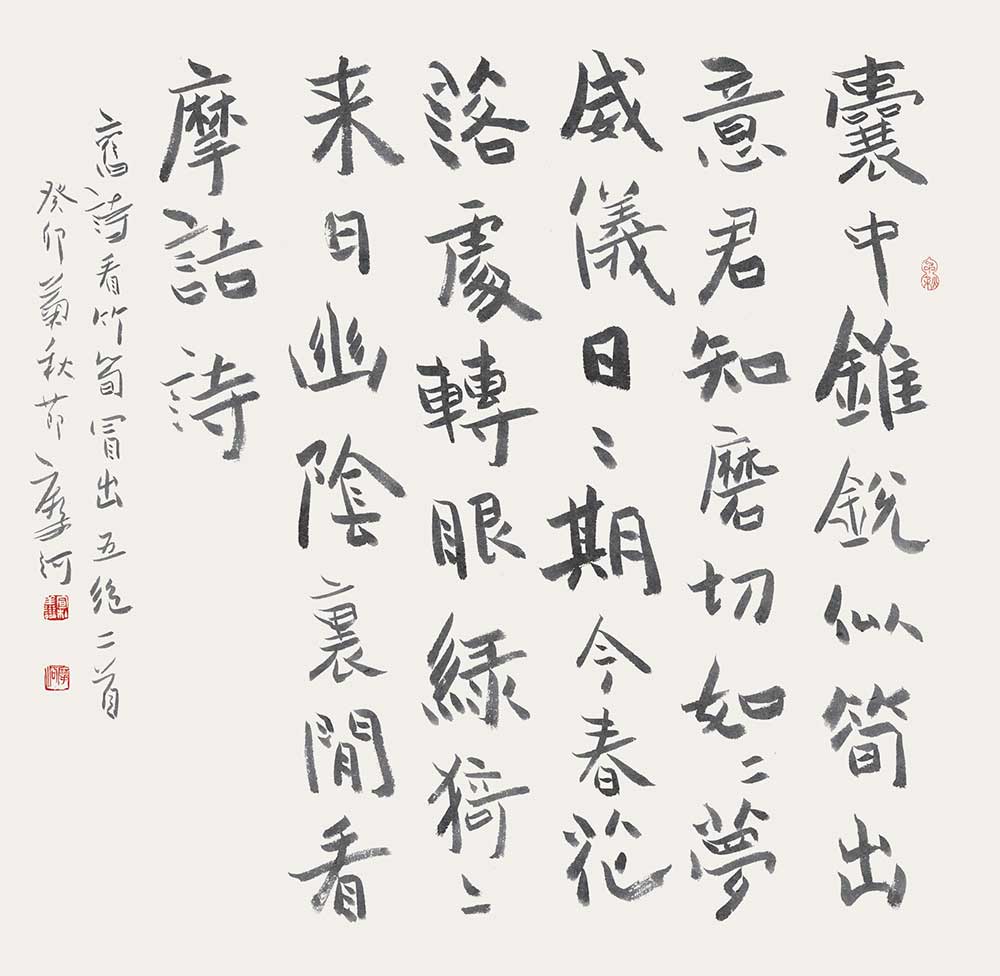 囊中錐銳似筍出
意君知磨切如〻夢
威儀日〻期今春花
落處轉眼綠猗〻
来日幽陰裏閒看
摩詰詩
舊詩看竹筍冒出五絕二首
癸卯菊秋節摩河